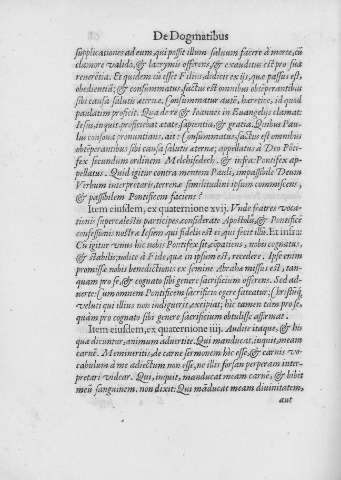 De Dogmatibus
supplicationes ad eum, qui possit illum saluum facere à morte, cũ
clamore valido, & lacrymis offerens, & exauditus est pro sua
reuerẽtia. Et quidem cũ esset Filius, didicit ex ijs, quæ passus est,
obedientiã; & consummatus, factus est omnibus obtẽperantibus
sibi causa salutis æternæ. Consummatur autẽ, hæretice, id quod
paulatim proficit. Qua de re & Ioannes in Euangelijs clamat:
Iesus, inquit, proficiebat ætate, sapientia, & gratia. Quibus Pau-
lus consona pronuntians, ait: Consummatus, factus est omnibus
obtẽperantibus sibi causa salutis æternæ; appellatus à Deo Põti-
fex secundum ordinem Melchisedech. & infra: Pontifex ap-
pellatus. Quid igitur contra mentem Pauli, impassibile Deum
Verbum interpretaris, terrenæ similitudini ipsum commiscens,
& passibilem Pontificem faciens?
Item eiusdem, ex quaternione xvij. Vnde fratres vocatio-
nis supercælestis participes, considerate Apostolũ, & Pontificẽ
confessionis nostræ Iesum qui fidelis est ei, qui fecit illũ. Et infra:
Cũ igitur vnus hic nobis Pontifex sit, cõpatiens, nobis cognatus,
& stabilis; nolite à Fide, quæ in ipsum est, recedere. Ipse enim
promissæ nobis benedictionis ex semine Abrahæ missus est, tan-
quam pro se, & cognato sibi genere sacrificium offerens. Sed ad-
uerte: Cum omnem Pontificem sacrificio egere fateatur; Christũq́;
veluti qui illius non indiguerit, excipiat; hic tamen eũm pro se,
quàm pro cognato sibi genere sacrificium obtulisse affirmat.
Item eiusdem, ex quaternione iiij. Audite itaque, & his
quæ dicuntur, animum aduertite. Qui manducat, inquit, meam
carnẽ. Memineritis, de carne sermonem hîc esse, & carnis vo-
cabulum à me adiectum non esse, ne illis forsan perperam inter-
pretari videar. Qui, inquit, manducat meam carnẽ, & bibit
meũ sanguinem. non dixit: Qui mãducat meam diuinitatem,
aut